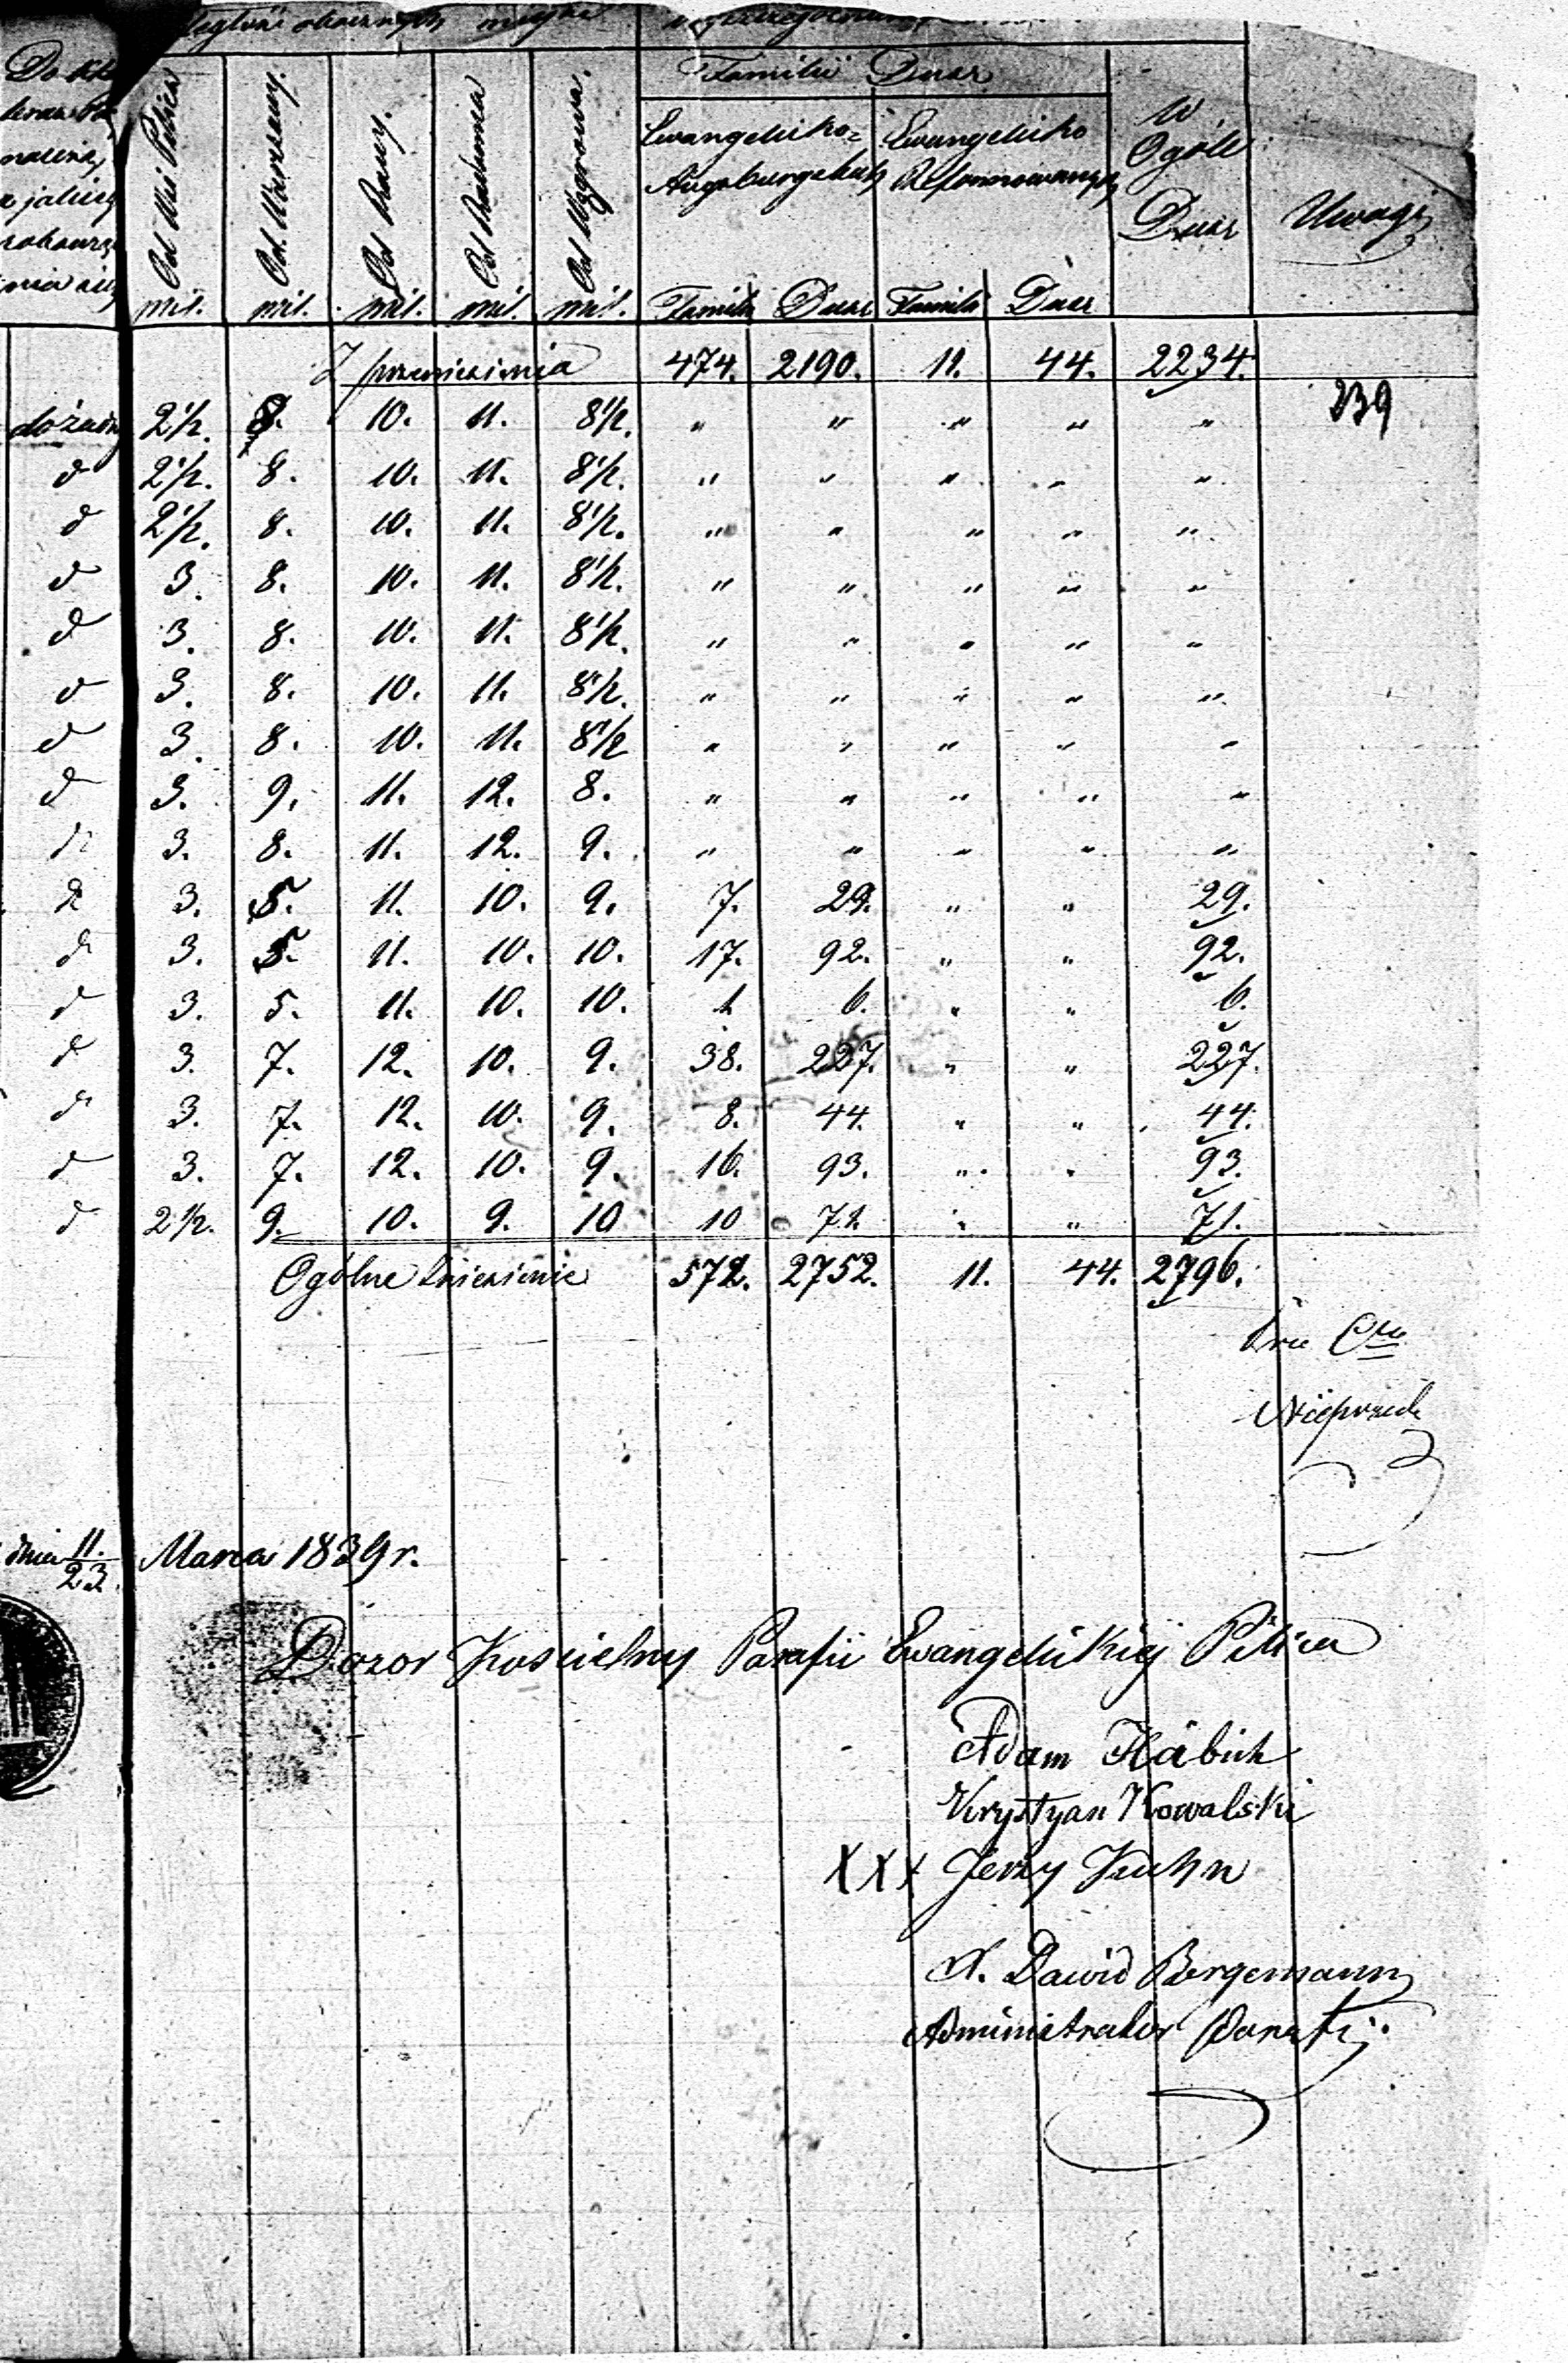 Familii Dusz
Ewangelicko=Augsburgskich
Ewangelicko Reformowanych
W Ogóle Dusz
Uwagi
Od Mci Pilica mil.
Od Warszawy. mil.
Od Rawy. mil.
Od Radomia mil.
Od Wągrowa. mil.
Familii Dusz Familii Dusz
Z przeniesienia 474. 2190. 11. 44. 2234.
239
do żadny 2½. 8. 10. 11. 8½. " " " " "
d 2½. 8. 10. 11. 8½. " " " " "
d 2½. 8. 10. 11. 8½. " " " " "
d 3. 8. 10. 11. 8½. " " " " "
d 3. 8. 10. 11. 8½. " " " " "
d 3. 8. 10. 11. 8½. " " " " "
d 3. 8. 10. 11. 8½ " " " " "
d 3. 9. 11. 12. 8. " " " " "
d 3. 8. 11. 12. 9. " " " " "
d 3. 5. 11. 10. 9. 7. 29. " " 29.
d 3. 5. 11. 10. 10. 17. 92. " " 92.
d 3. 5. 11. 10. 10. 1 6. " " 6.
d 3. 7. 12. 10. 9. 38. 227. " " 227.
d 3. 7. 12. 10. 9. 8. 44. " " 44.
d 3. 7. 12. 10. 9. 16. 93. " " 93.
d 2½. 9. 10. 9. 10 10 71. " " 71.
Ogólne zniesienie 572. 2752. 11. 44. 2796.
dnia 11./23. Marca 1839 r.
Dozor Koscielny Parafii Ewangelickiej Pilica
Adam Häbich
Krystyan Kowalski
XXX Jerzy Kuhn
X. Dawid Bergemann
Administrator Parafij.